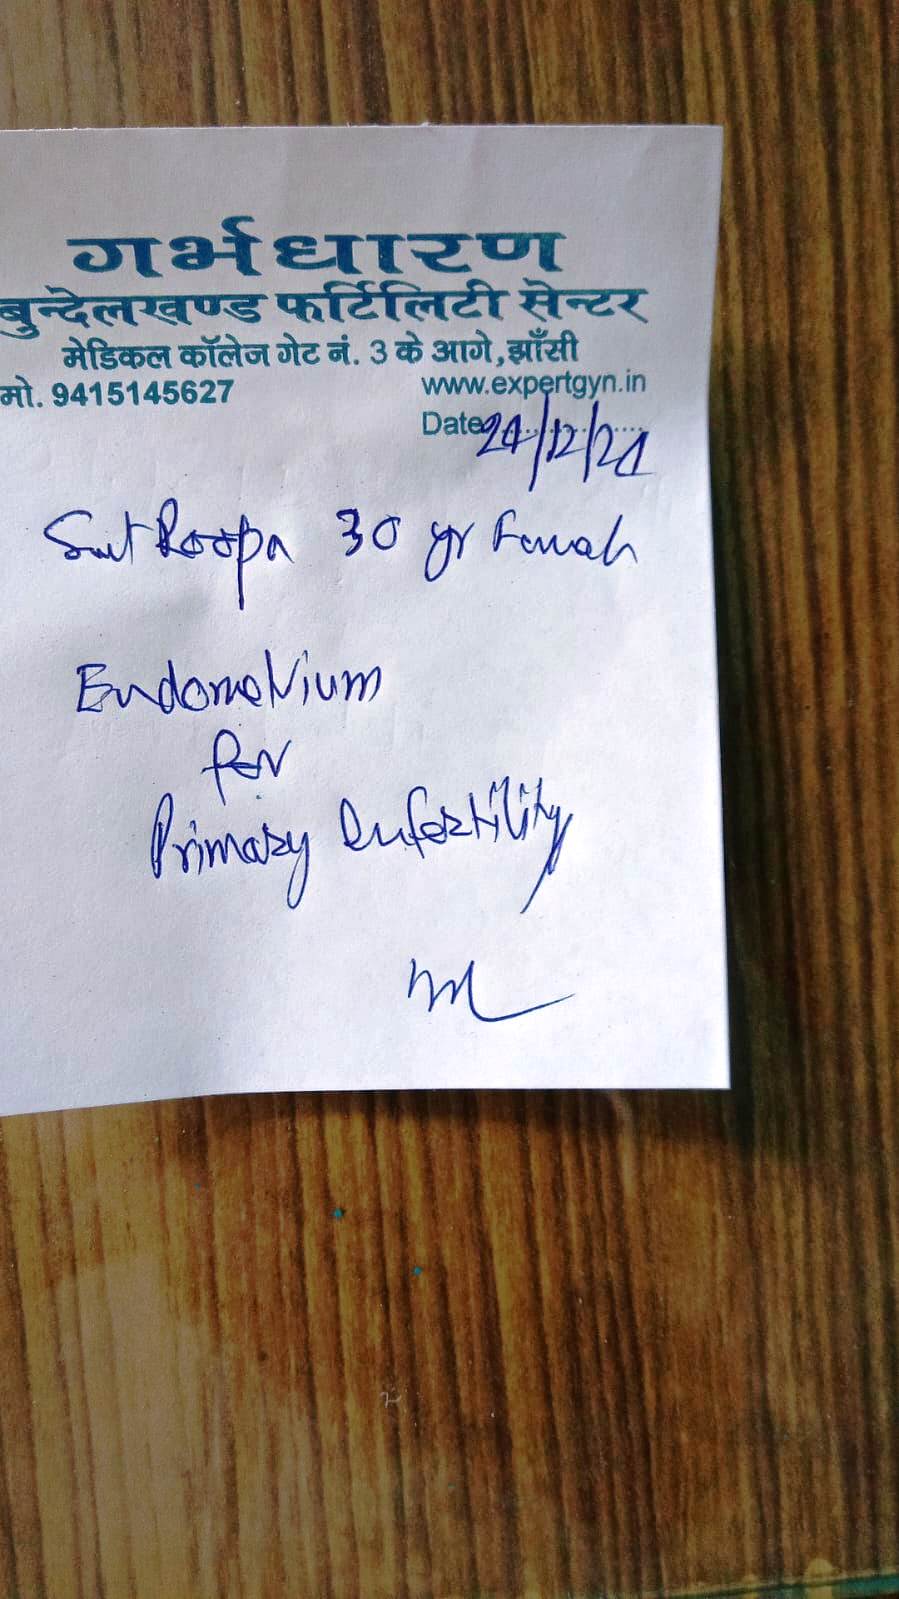 गर्भधारण
बुन्देलखण्ड फर्टिलिटी सेन्टर
मेडिकल कॉलेज गेट नं. 3 के आगे, झाँसी
मो. 9415145627 www.expertgyn.in
Date 24/12/24
Smt Roopa 30 yr Female
Endometrium
for
Primary Infertility